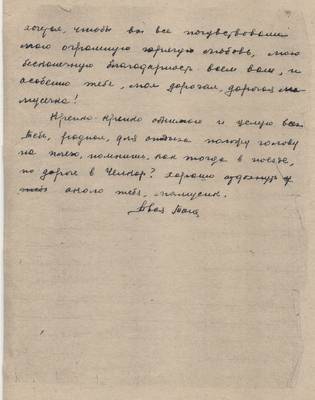 хотел, чтобы вы все почувствовали
мою огромную горячую любовь, мою
бесконечную благодарность всем вам, и
особенно тебе, моя дорогая, дорогая ма
мусечка!
Крепко-крепко обнимаю и целую всех
Тебе, родная, для отдыха положу голову
на плечо, помнишь, как тогда в поезде,
по дороге в Челкар? Хорошо отдохнуть
около тебя, мамусик.
Твоя